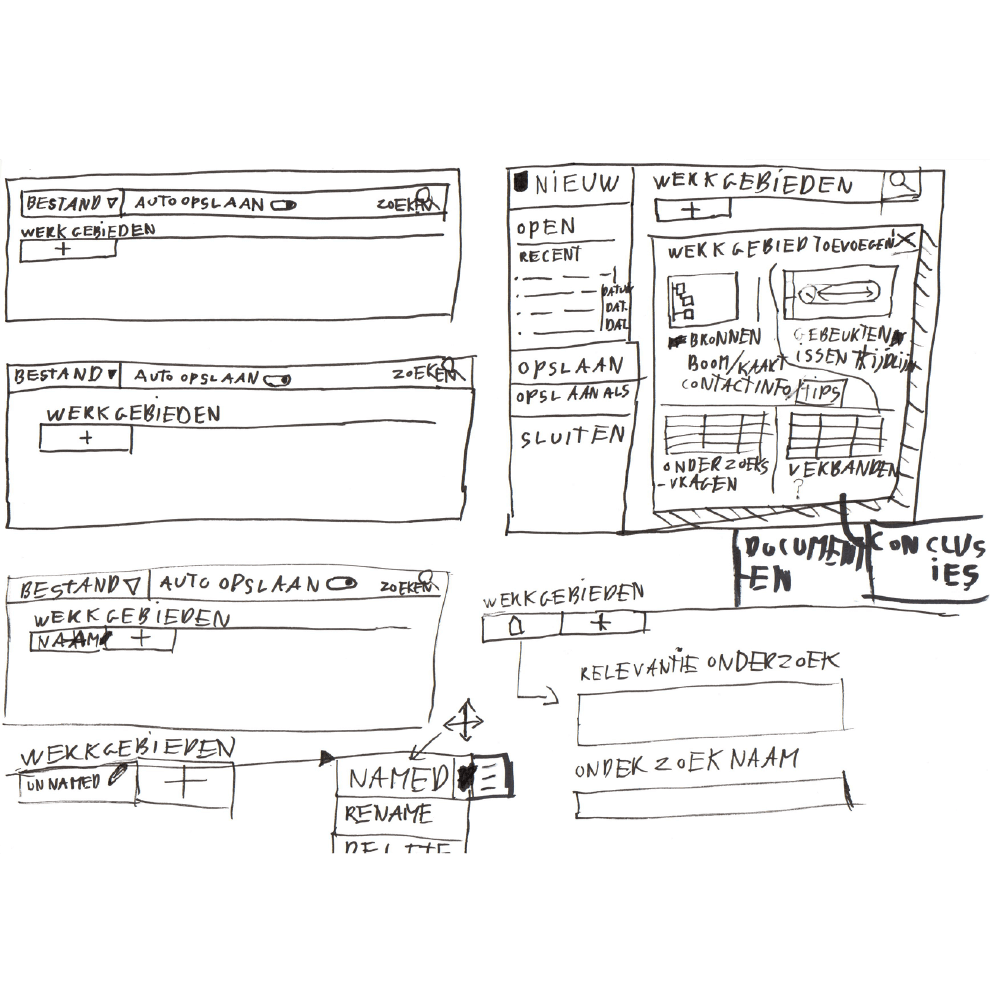 BESTAND ▽ AUTO OPSLAAN ZOEKEN
WERKGEBIEDEN
+
BESTAND ▼ AUTO OPSLAAN ZOEKEN
WERKGEBIEDEN
+
BESTAND ▽ AUTO OPSLAAN ZOEKEN
WERKGEBIEDEN
NAAM +
WERKGEBIEDEN
UNNAMED +
NAMED
RENAME
DELETE
NIEUW
OPEN
RECENT
DATUM
DAT.
DAT
OPSLAAN
OPSLAAN ALS
SLUITEN
WERKGEBIEDEN
+
WERKGEBIED TOEVOEGEN X
BRONNEN
BOOM/KAART
CONTACTINFO/TIPS
GEBEURTEN
ISSEN TIJDLIJN
ONDERZOEKS
-VRAGEN
VERBANDEN
?
DOCUMENT
-EN
CONCLUS
IES
WERKGEBIEDEN
+
RELEVANTIE ONDERZOEK
ONDERZOEK NAAM